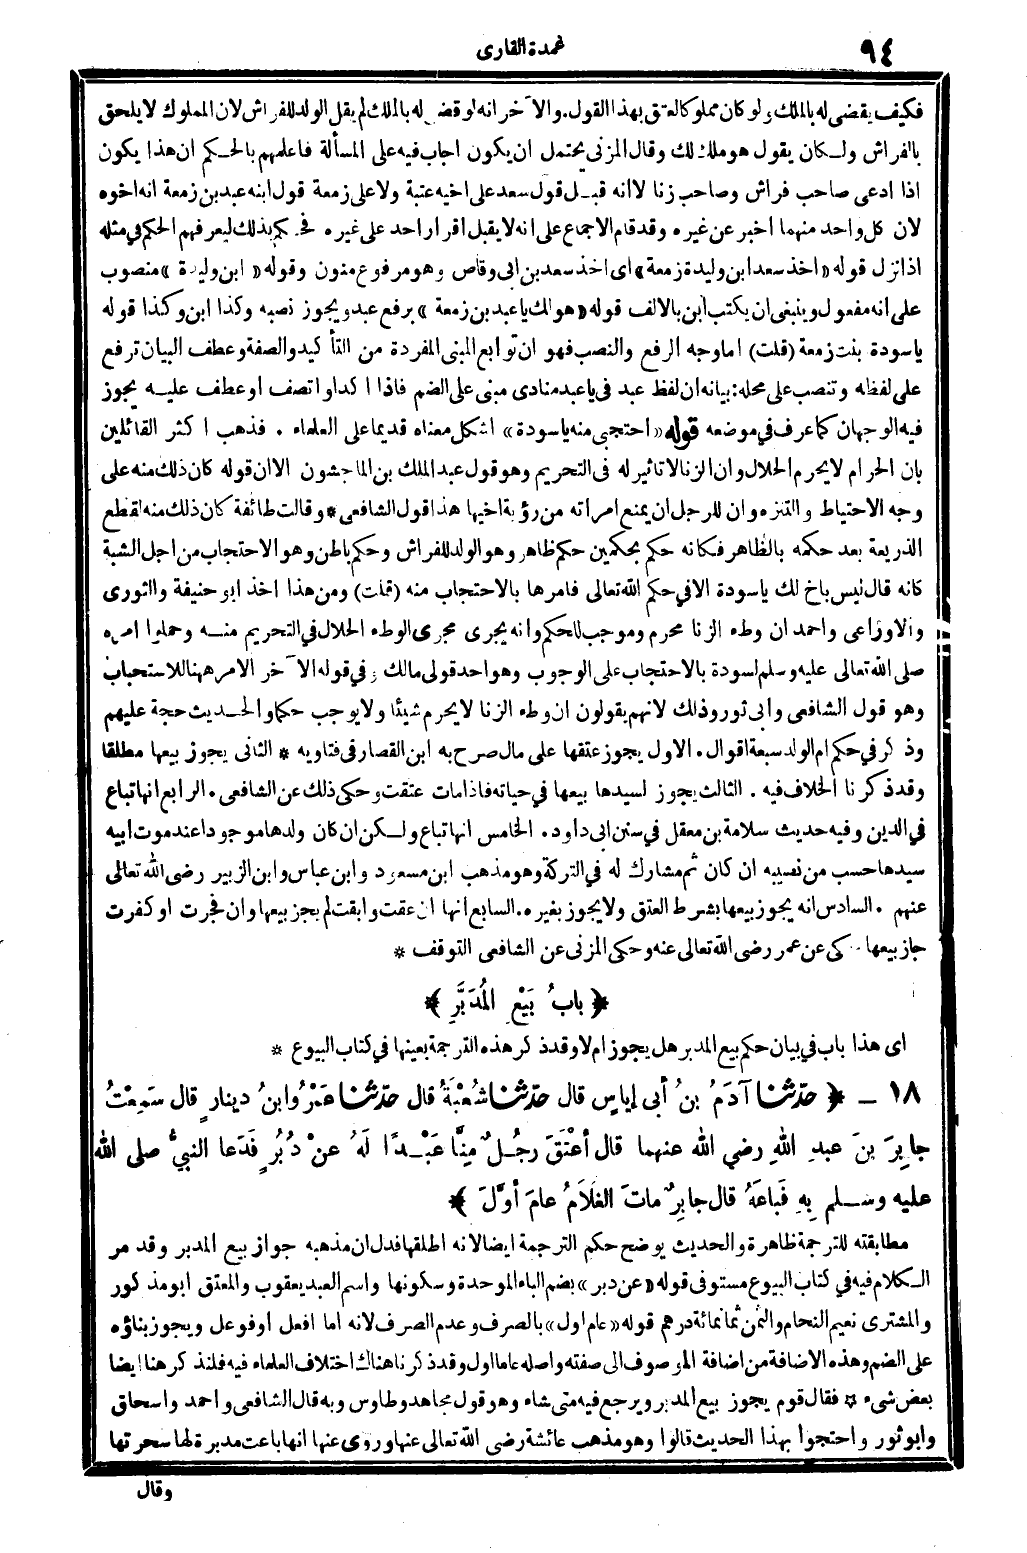 ٩٤
عمدة القارى
فكيف يقضى له بالملك ولو كان مملوكا لعتق بهذا القول. والآخر انه لو قضى له بالملك لم يقل الولد للفراش لان المملوك لا يلحق
بالفراش ولكان يقول هو ملك لك وقال المزنى يحتمل ان يكون اجاب فيه على المسألة فاعلمهم بالحكم ان هذا يكون
اذا ادعى صاحب فراش وصاحب زنا لا انه قبل قول سعد على اخيه عتبة ولا على زمعة قول ابنه عبد بن زمعة انه اخوه
لان كل واحد منهما أخبر عن غيره وقد قام الاجماع على انه لا يقبل اقرار احد على غيره فحكم بذلك ليعرفهم الحكم فى مثله
اذا نزل قوله «اخذ سعد ابن وليدة زمعة» اى اخذ سعد بن ابى وقاص وهو مرفوع منون وقوله «ابن وليدة» منصوب
على انه مفعول وينبغى ان يكتب ابن بالالف قوله «هو لك يا عبد بن زمعة» برفع عبد ويجوز نصبه وكذا ابن وكذا قوله
ياسودة بنت زمعة (قلت) اما وجه الرفع والنصب فهو ان توابع المبنى المفردة من التأكيد والصفة وعطف البيان ترفع
على لفظه وتنصب على محله: بيانه ان لفظ عبد فى ياعبد منادى مبنى على الضم فاذا اكد او اتصف او عطف عليه يجوز
فيه الوجهان كما عرف فى موضعه قوله «احتجبى منه ياسودة» اشكل معناه قديما على العلماء . فذهب اكثر القائلين
بان الحرام لا يحرم الحلال وان الزنا لا تاثير له فى التحريم وهو قول عبد الملك بن الماجشون الا ان قوله كان ذلك منه على
وجه الاحتياط والتنزه وان للرجل ان يمنع امراته من رؤية اخيها هذا قول الشافعى * وقالت طائفة كان ذلك منه لقطع
الذريعة بعد حكمه بالظاهر فكانه حكم بحكمين حكم ظاهر وهو الولد للفراش وحكم باطن وهو الاحتجاب من اجل الشبة
كانه قال ليس باخ لك ياسودة الا فى حكم الله تعالى فامرها بالاحتجاب منه (قلت) ومن هذا اخذ ابو حنيفة والثورى
والاوزاعى واحمد ان وطء الزنا محرم وموجب للحكم وانه يجرى مجرى الوطء الحلال فى التحريم منه وحملوا امره
صلى الله تعالى عليه وسلم لسودة بالاحتجاب على الوجوب وهو احد قولى مالك وفى قوله الآخر الامر ههنا للاستحباب
وهو قول الشافعى وابى ثور وذلك لانهم يقولون ان وطء الزنا لا يحرم شيئا ولا يوجب حكما والحديث حجة عليهم
وذكر فى حكم ام الولد سبعة اقوال. الاول يجوز عتقها على مال صرح به ابن القصار فى فتاويه * الثانى يجوز بيعها مطلقا
وقد ذكرنا الخلاف فيه . الثالث يجوز لسيدها بيعها فى حياته فاذا مات عتقت وحكى ذلك عن الشافعى. الرابع انها تباع
فى الدين وفيه حديث سلامة بن معقل فى سنن ابى داود. الخامس انها تباع ولكن ان كان ولدها موجودا عند موت ابيه
سيدها حسب من نصيبه ان كان ثم مشارك له فى التركة وهو مذهب ابن مسعود وابن عباس وابن الزبير رضى الله تعالى
عنهم . السادس انه يجوز بيعها بشرط العتق ولا يجوز بغيره. السابع انها ان عقت وابقت لم يجز بيعها وان فجرت او كفرت
جاز بيعها حكى عن عمر رضى الله تعالى عنه وحكى المزنى عن الشافعى التوقف *
﴿ بابُ بَيْعِ المُدَبَّرِ ﴾
اى هذا باب فى بيان حكم بيع المدبر هل يجوز ام لا وقد ذكر هذه الترجمة بعينها فى كتاب البيوع *
١٨ ـ ﴿ حدّثنا آدَمُ بنُ أبى إياسٍ قال حدّثنا شُعْبَةُ قال حدّثنا عَمْرُو ابنُ دينارٍ قال سَمِعْتُ
جابِرَ بنَ عبدِ اللهِ رضي الله عنهما قال أعْتَقَ رجُلٌ مِنَّا عَبْدًا لَهُ عنْ دُبُرٍ فَدَعا النبيُّ صلى الله
عليه وسلم بِهِ فَباعَهُ قال جابِرٌ ماتَ الغلاَمُ عامَ أوَّلَ ﴾
مطابقته للترجمة ظاهرة والحديث يوضح حكم الترجمة ايضا لانه اطلقها فدل ان مذهبه جواز بيع المدبر وقد مر
الكلام فيه فى كتاب البيوع مستوفى قوله «عن دبر» بضم الباء الموحدة وسكونها واسم العبد يعقوب والمعتق ابو مذكور
والمشترى نعيم النحام والثمن ثمانمائة درهم قوله «عام اول» بالصرف وعدم الصرف لانه اما افعل او فوعل ويجوز بناؤه
على الضم وهذه الاضافة من اضافة الموصوف الى صفته واصله عاما اول وقد ذكرنا هناك اختلاف العلماء فيه فلنذكر هنا ايضا
بعض شىء * فقال قوم يجوز بيع المدبر ويرجع فيه متى شاء وهو قول مجاهد وطاوس وبه قال الشافعى واحمد واسحاق
وابو ثور واحتجوا بهذا الحديث قالوا وهو مذهب عائشة رضى الله تعالى عنها وروى عنها انها باعت مدبرة لها سحرتها
وقال